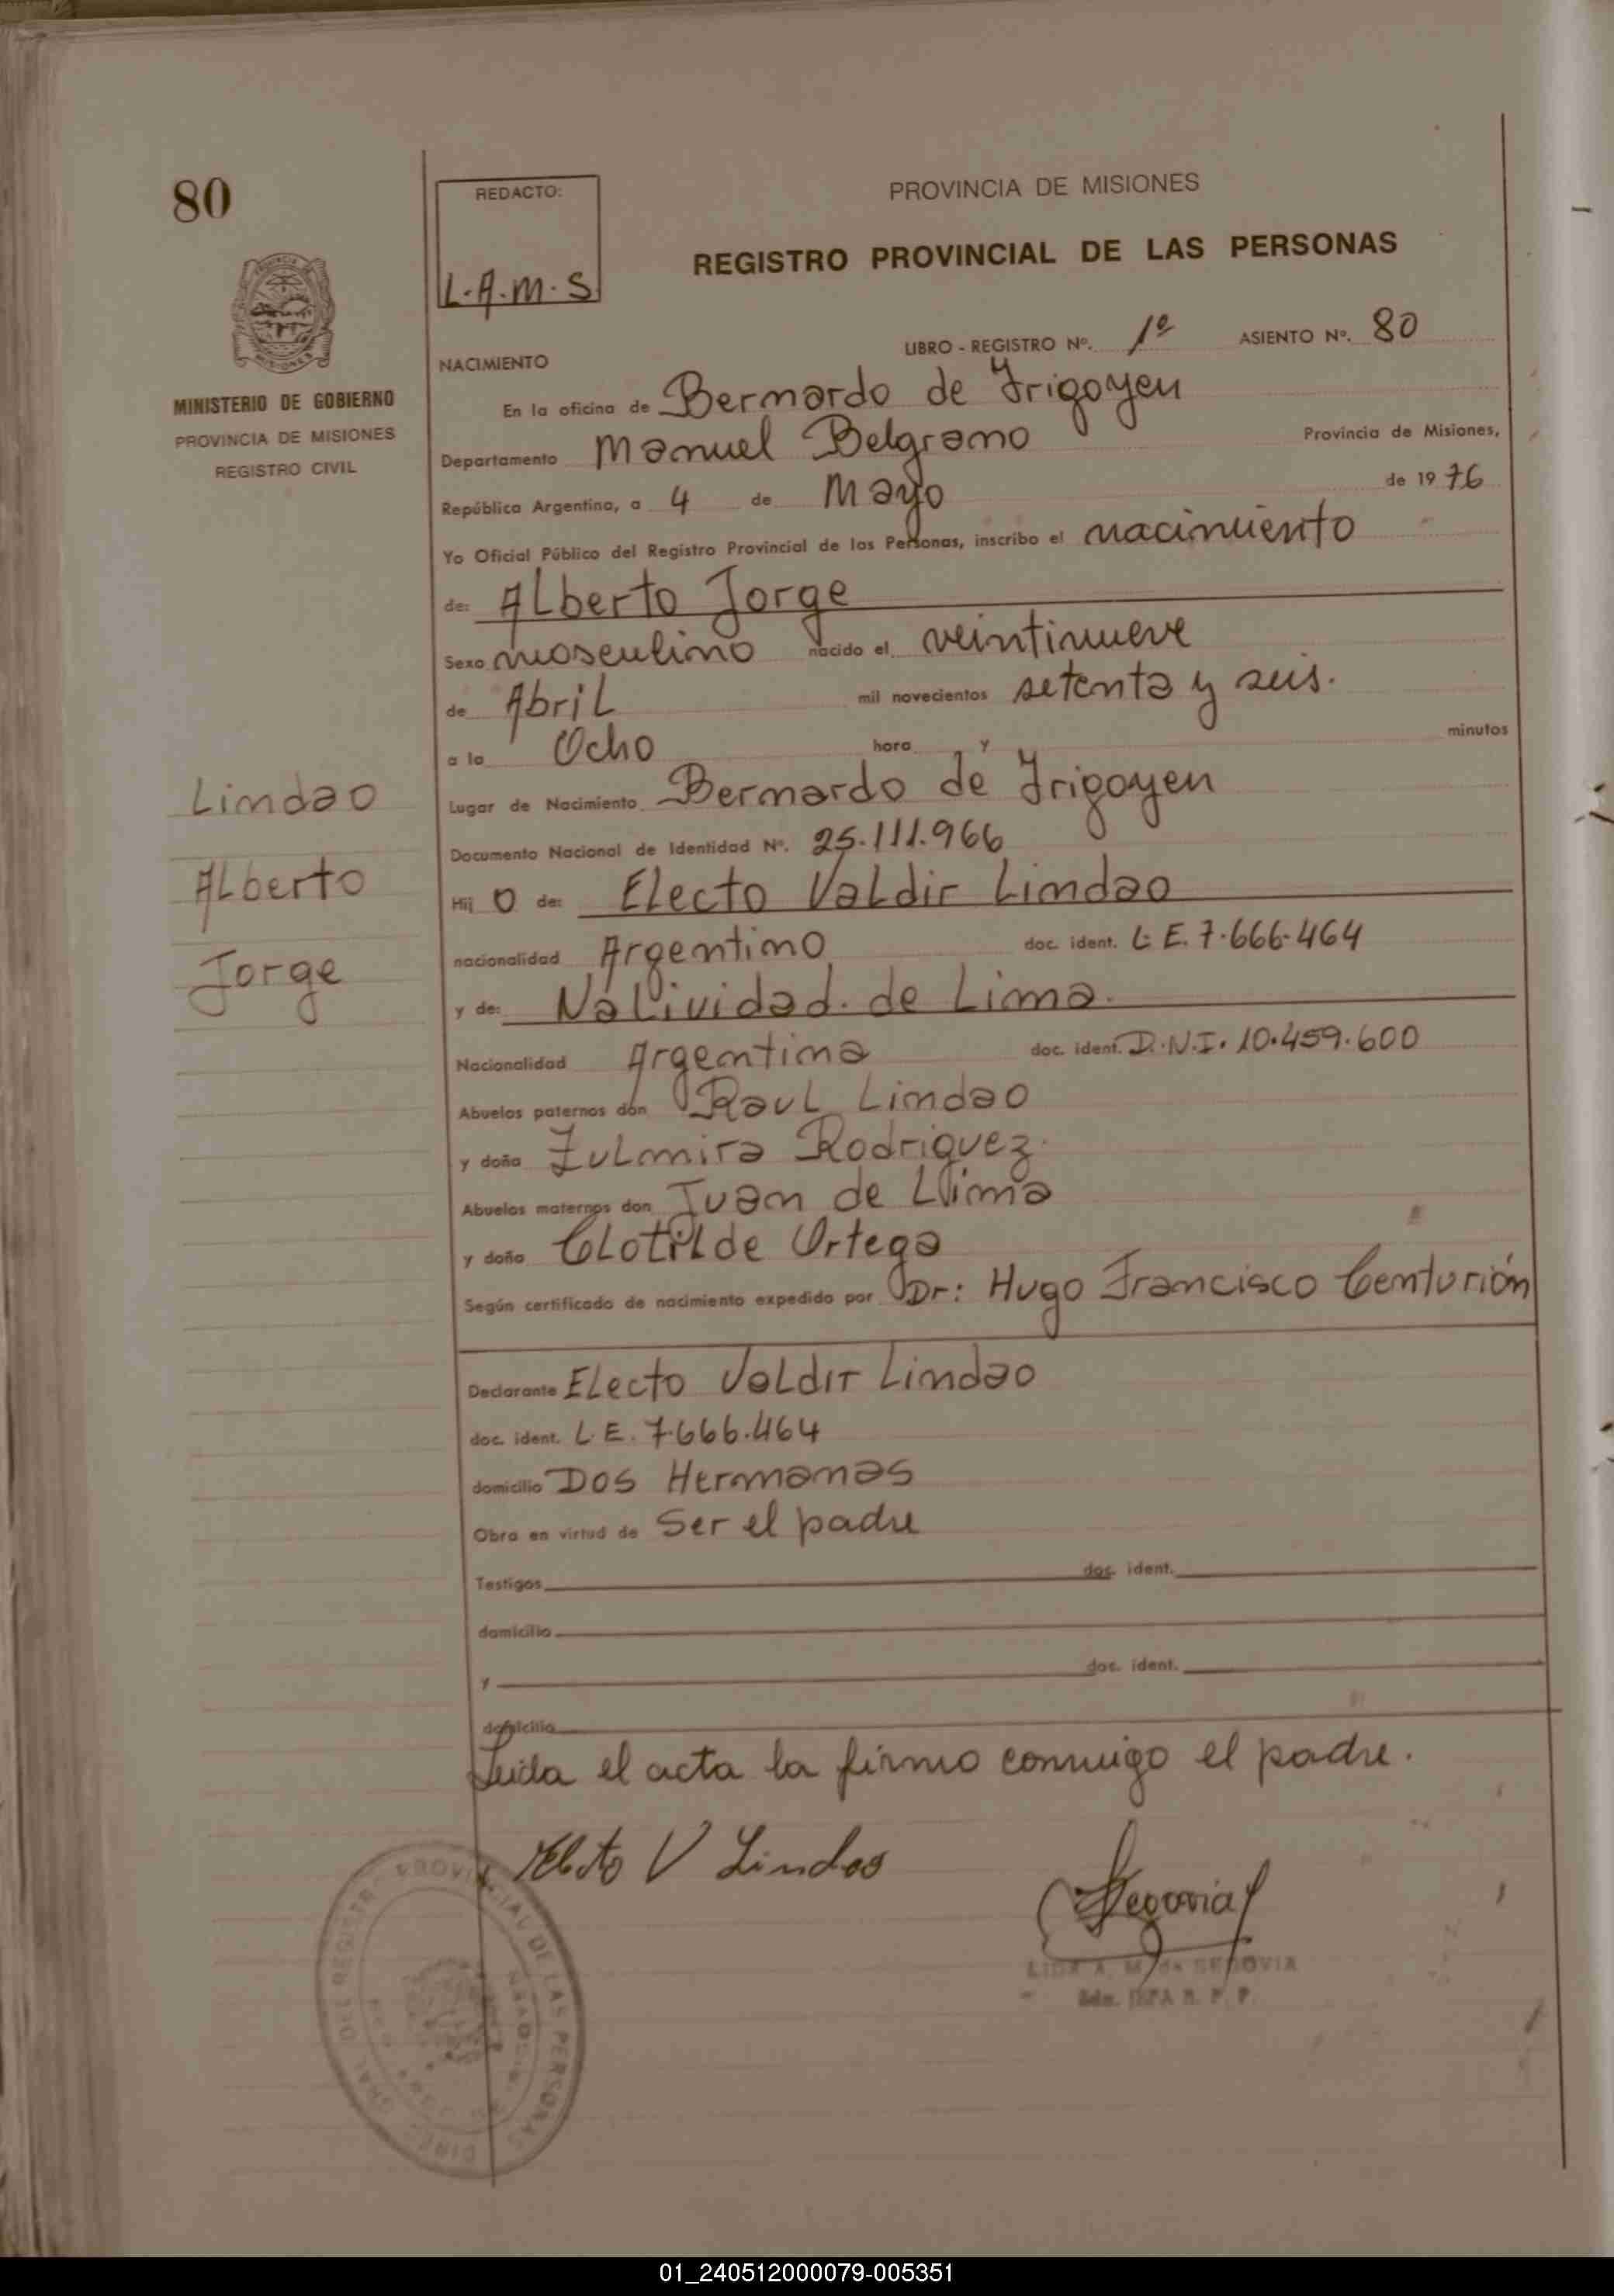 80
PROVINCIA DE MISIONES
MINISTERIO DE GOBIERNO
PROVINCIA DE MISIONES
REGISTRO CIVIL
Lindao
Alberto
Jorge
REDACTO:
L.A.M.S
PROVINCIA DE MISIONES
REGISTRO PROVINCIAL DE LAS PERSONAS
LIBRO - REGISTRO Nº. 1º ASIENTO Nº. 80
NACIMIENTO
En la oficina de Bernardo de Irigoyen
Departamento Manuel Belgrano Provincia de Misiones,
República Argentina, a 4 de Mayo de 1976
Yo Oficial Público del Registro Provincial de las Personas, inscribo el nacimiento
de: Alberto Jorge
Sexo masculino nacido el veintinueve
de Abril mil novecientos setenta y seis.
a la Ocho hora y minutos
Lugar de Nacimiento Bernardo de Irigoyen
Documento Nacional de Identidad Nº. 25.111.966
Hij o de: Electo Valdir Lindao
nacionalidad Argentino doc. ident. L.E. 7.666.464
y de: Natividad de Lima
Nacionalidad Argentina doc. ident. D.N.I. 10.459.600
Abuelos paternos don Raul Lindao
y doña Zulmira Rodriguez
Abuelos maternos don Juan de Lima
y doña Clotilde Ortega
Según certificado de nacimiento expedido por Dr: Hugo Francisco Centurión
Declarante Electo Valdir Lindao
doc. ident. L.E. 7.666.464
domicilio Dos Hermanas
Obra en virtud de Ser el padre
Testigos doc. ident.
domicilio
y doc. ident.
domicilio
Leida el acta la firmo conmigo el padre.
Electo V Lindao
Segovia
LIDA A. M. de SEGOVIA
R. P. P.
PROVINCIAL DE LAS PERSONAS
01_240512000079-005351